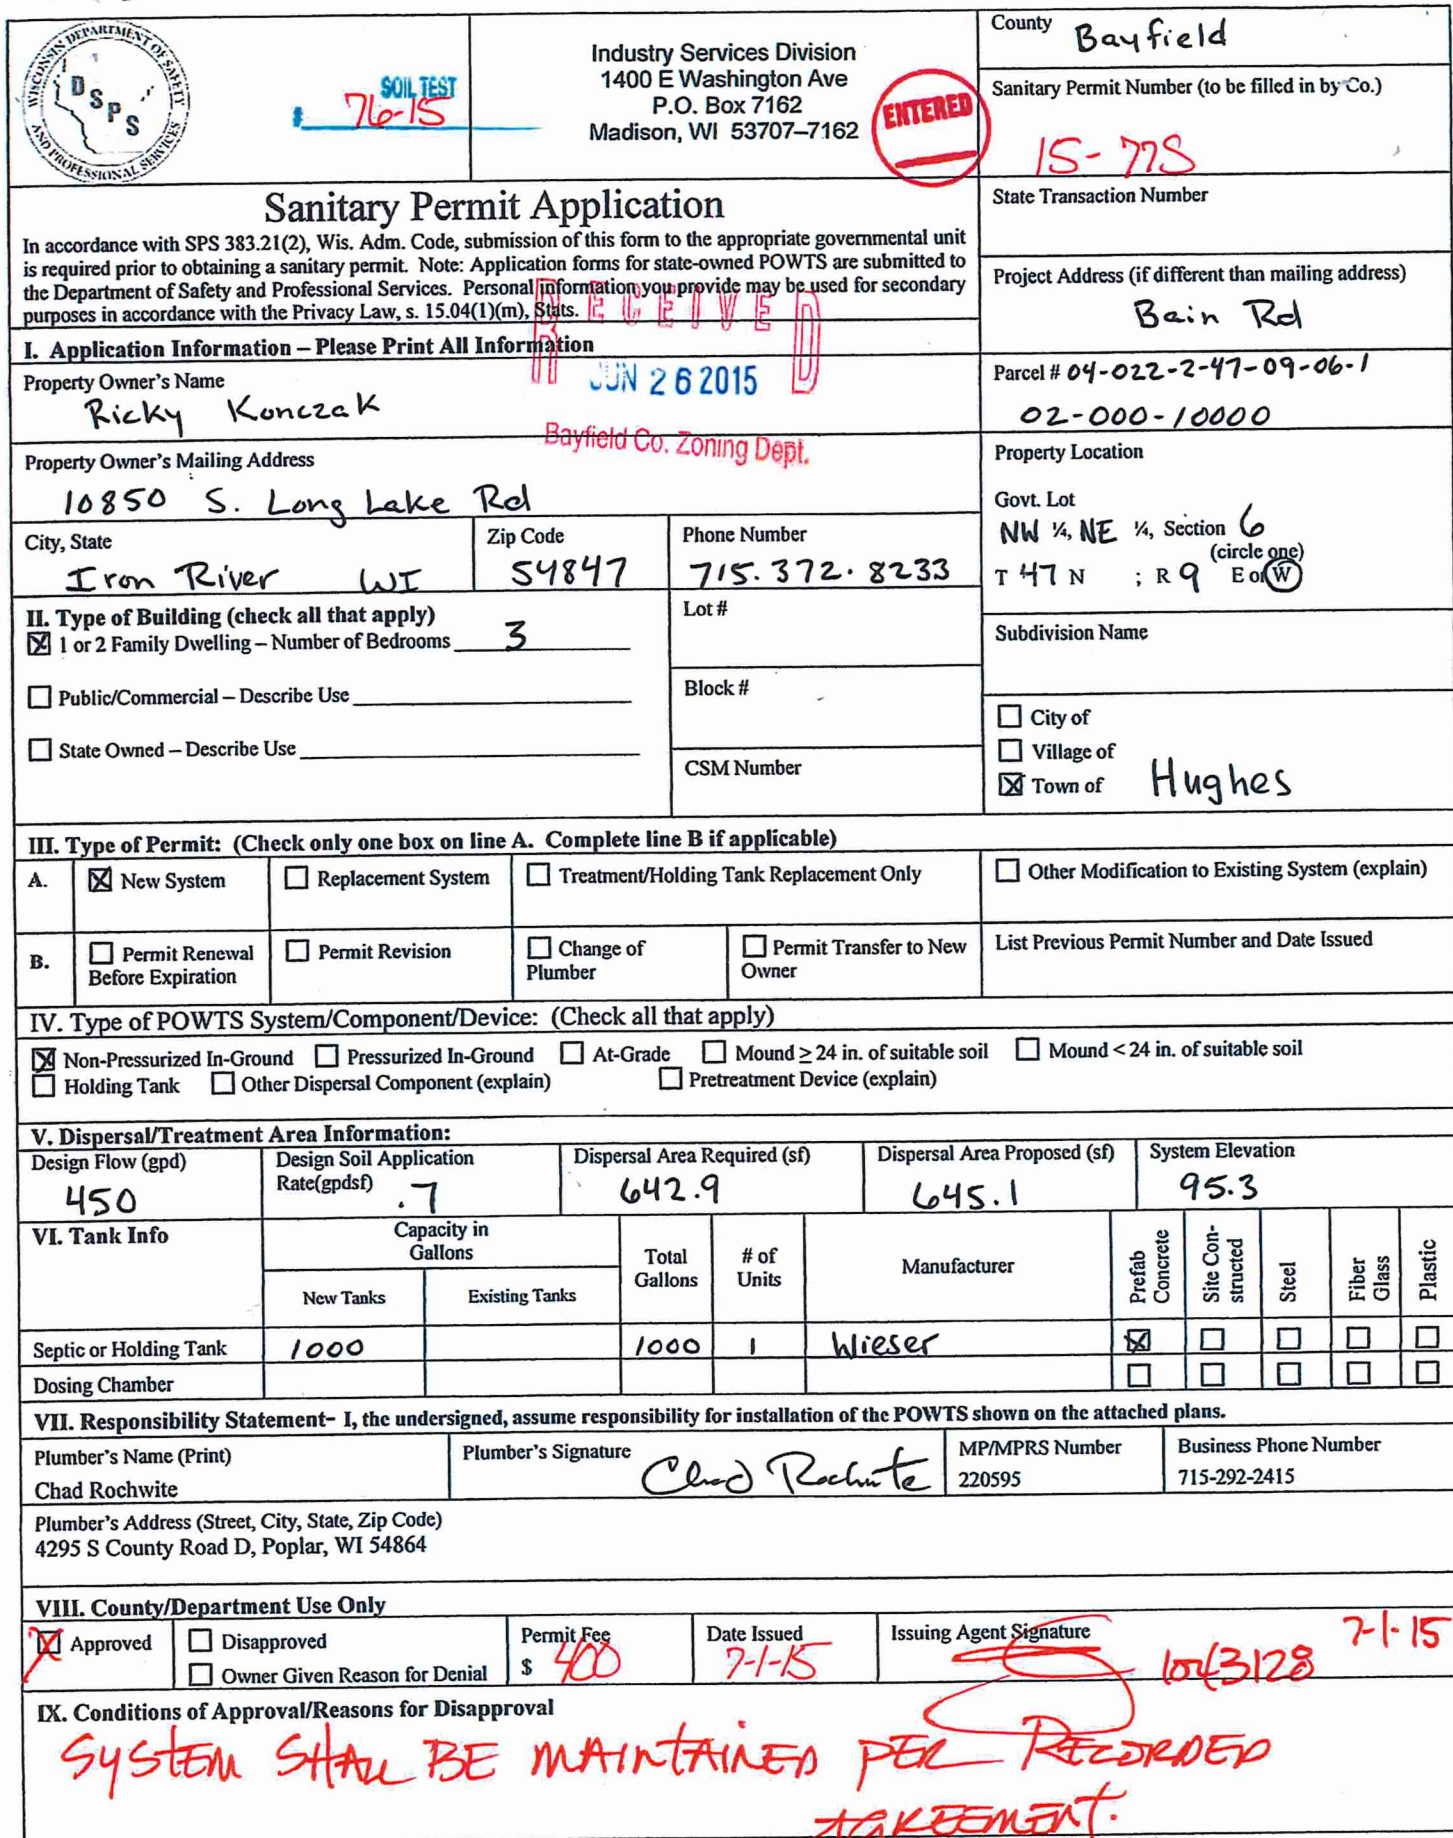 WISCONSIN DEPARTMENT OF SAFETY
AND PROFESSIONAL SERVICES
DSPS
SOIL TEST
# 76-15
Industry Services Division
1400 E Washington Ave
P.O. Box 7162
Madison, WI 53707-7162
ENTERED
County Bayfield
Sanitary Permit Number (to be filled in by Co.)
15-77S
State Transaction Number
Sanitary Permit Application
In accordance with SPS 383.21(2), Wis. Adm. Code, submission of this form to the appropriate governmental unit
is required prior to obtaining a sanitary permit. Note: Application forms for state-owned POWTS are submitted to
the Department of Safety and Professional Services. Personal information you provide may be used for secondary
purposes in accordance with the Privacy Law, s. 15.04(1)(m), Stats.
Project Address (if different than mailing address)
Bain Rd
RECEIVED
JUN 26 2015
Bayfield Co. Zoning Dept.
I. Application Information – Please Print All Information
Property Owner's Name
Ricky Konczak
Parcel # 04-022-2-47-09-06-1
02-000-10000
Property Owner's Mailing Address
10850 S. Long Lake Rd
Property Location
Govt. Lot
NW ¼, NE ¼, Section 6
(circle one)
T 47 N ; R 9 E or W
City, State
Iron River WI
Zip Code
54847
Phone Number
715.372.8233
II. Type of Building (check all that apply)
1 or 2 Family Dwelling – Number of Bedrooms 3
Public/Commercial – Describe Use
State Owned – Describe Use
Lot #
Block #
CSM Number
Subdivision Name
City of
Village of
Town of Hughes
III. Type of Permit: (Check only one box on line A. Complete line B if applicable)
A. New System Replacement System Treatment/Holding Tank Replacement Only Other Modification to Existing System (explain)
B. Permit Renewal Before Expiration Permit Revision Change of Plumber Permit Transfer to New Owner List Previous Permit Number and Date Issued
IV. Type of POWTS System/Component/Device: (Check all that apply)
Non-Pressurized In-Ground Pressurized In-Ground At-Grade Mound ≥ 24 in. of suitable soil Mound < 24 in. of suitable soil
Holding Tank Other Dispersal Component (explain) Pretreatment Device (explain)
V. Dispersal/Treatment Area Information:
Design Flow (gpd)
450
Design Soil Application
Rate(gpdsf) .7
Dispersal Area Required (sf)
642.9
Dispersal Area Proposed (sf)
645.1
System Elevation
95.3
VI. Tank Info
Capacity in
Gallons
New Tanks Existing Tanks
Total
Gallons
# of
Units
Manufacturer
Prefab
Concrete
Site Con-
structed
Steel
Fiber
Glass
Plastic
Septic or Holding Tank 1000 1000 1 Wieser
Dosing Chamber
VII. Responsibility Statement- I, the undersigned, assume responsibility for installation of the POWTS shown on the attached plans.
Plumber's Name (Print)
Chad Rochwite
Plumber's Signature
Chad Rochwite
MP/MPRS Number
220595
Business Phone Number
715-292-2415
Plumber's Address (Street, City, State, Zip Code)
4295 S County Road D, Poplar, WI 54864
VIII. County/Department Use Only
Approved
Disapproved
Owner Given Reason for Denial
Permit Fee
$ 400
Date Issued
7-1-15
Issuing Agent Signature
1043128
7-1-15
IX. Conditions of Approval/Reasons for Disapproval
SYSTEM SHALL BE MAINTAINED PER RECORDED
AGREEMENT.